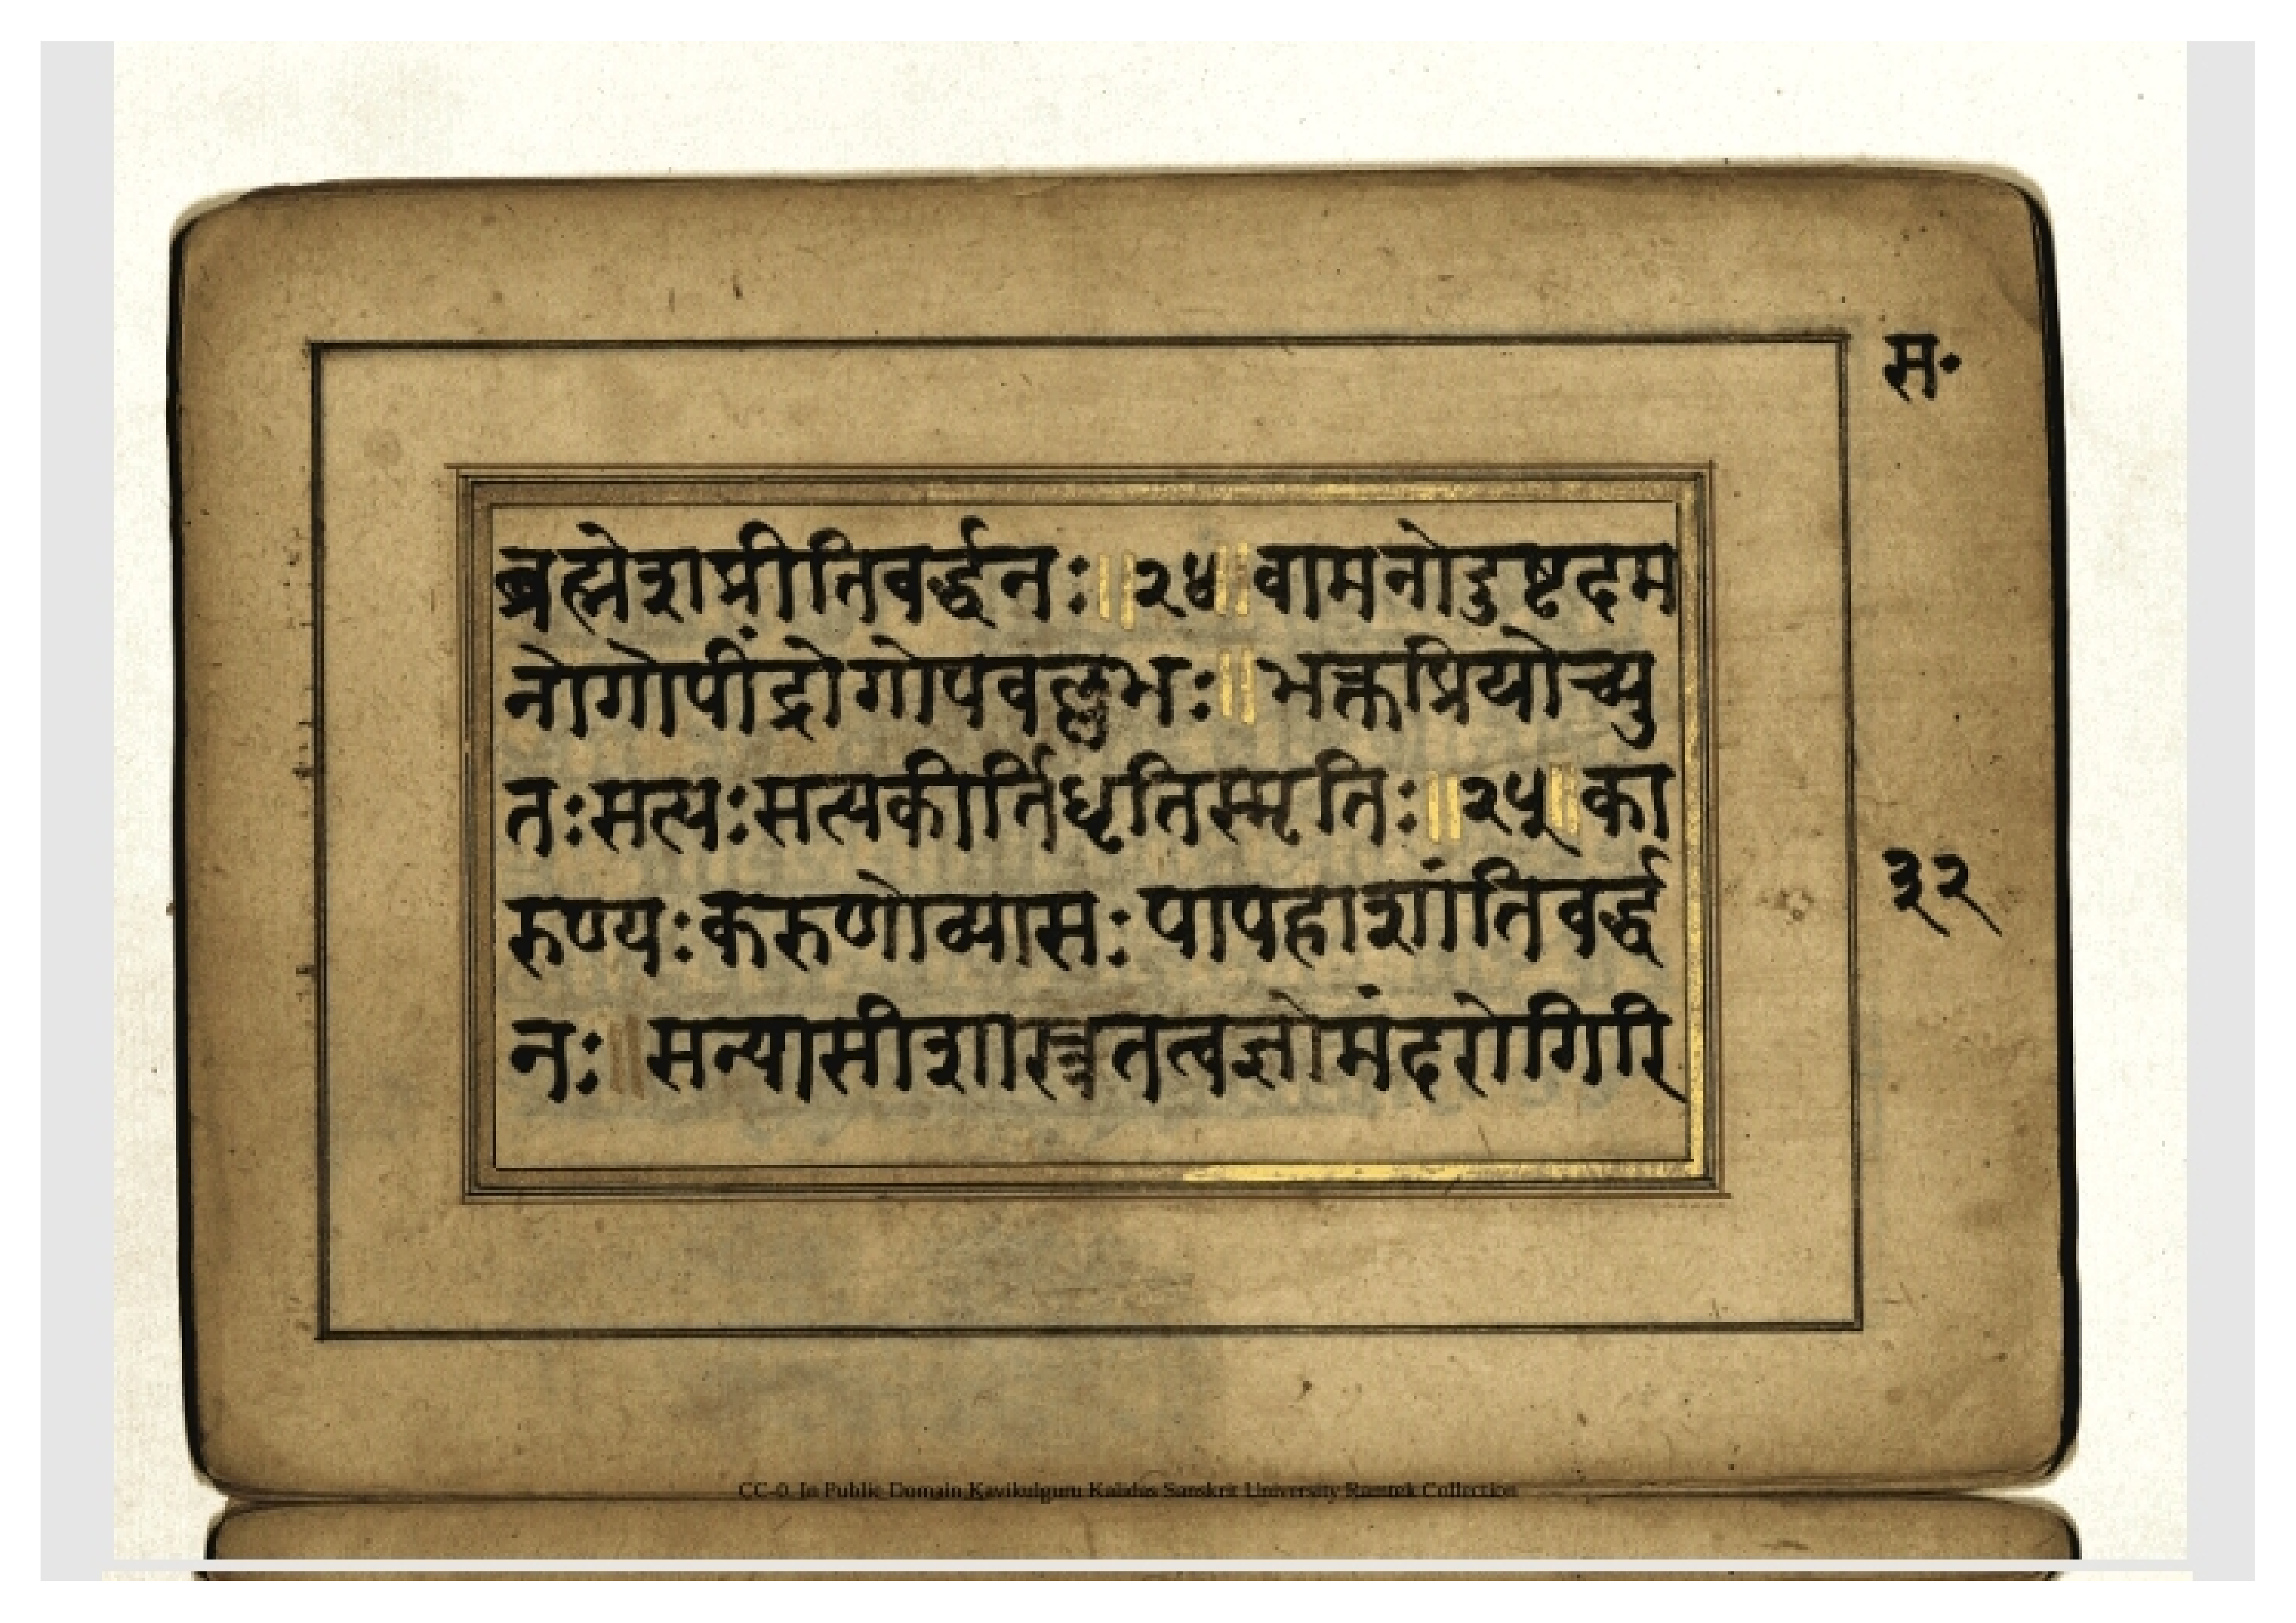 स॰
ब्रह्मेशप्रीतिवर्द्धनः॥२४॥वामनोदुष्टदम
नोगोपींद्रोगोपवल्लभः॥भक्तप्रियोच्यु
तःसत्यःसत्यकीर्तिधृतिस्मृतिः॥२५॥का
रुण्यःकरुणोव्यासःपापहाशांतिवर्द्ध
३२
नः॥सन्यासीशास्त्रतत्वज्ञोमंदरोगिरि
CC-0. In Public Domain.Kavikulguru Kalidas Sanskrit University Ramtek Collection